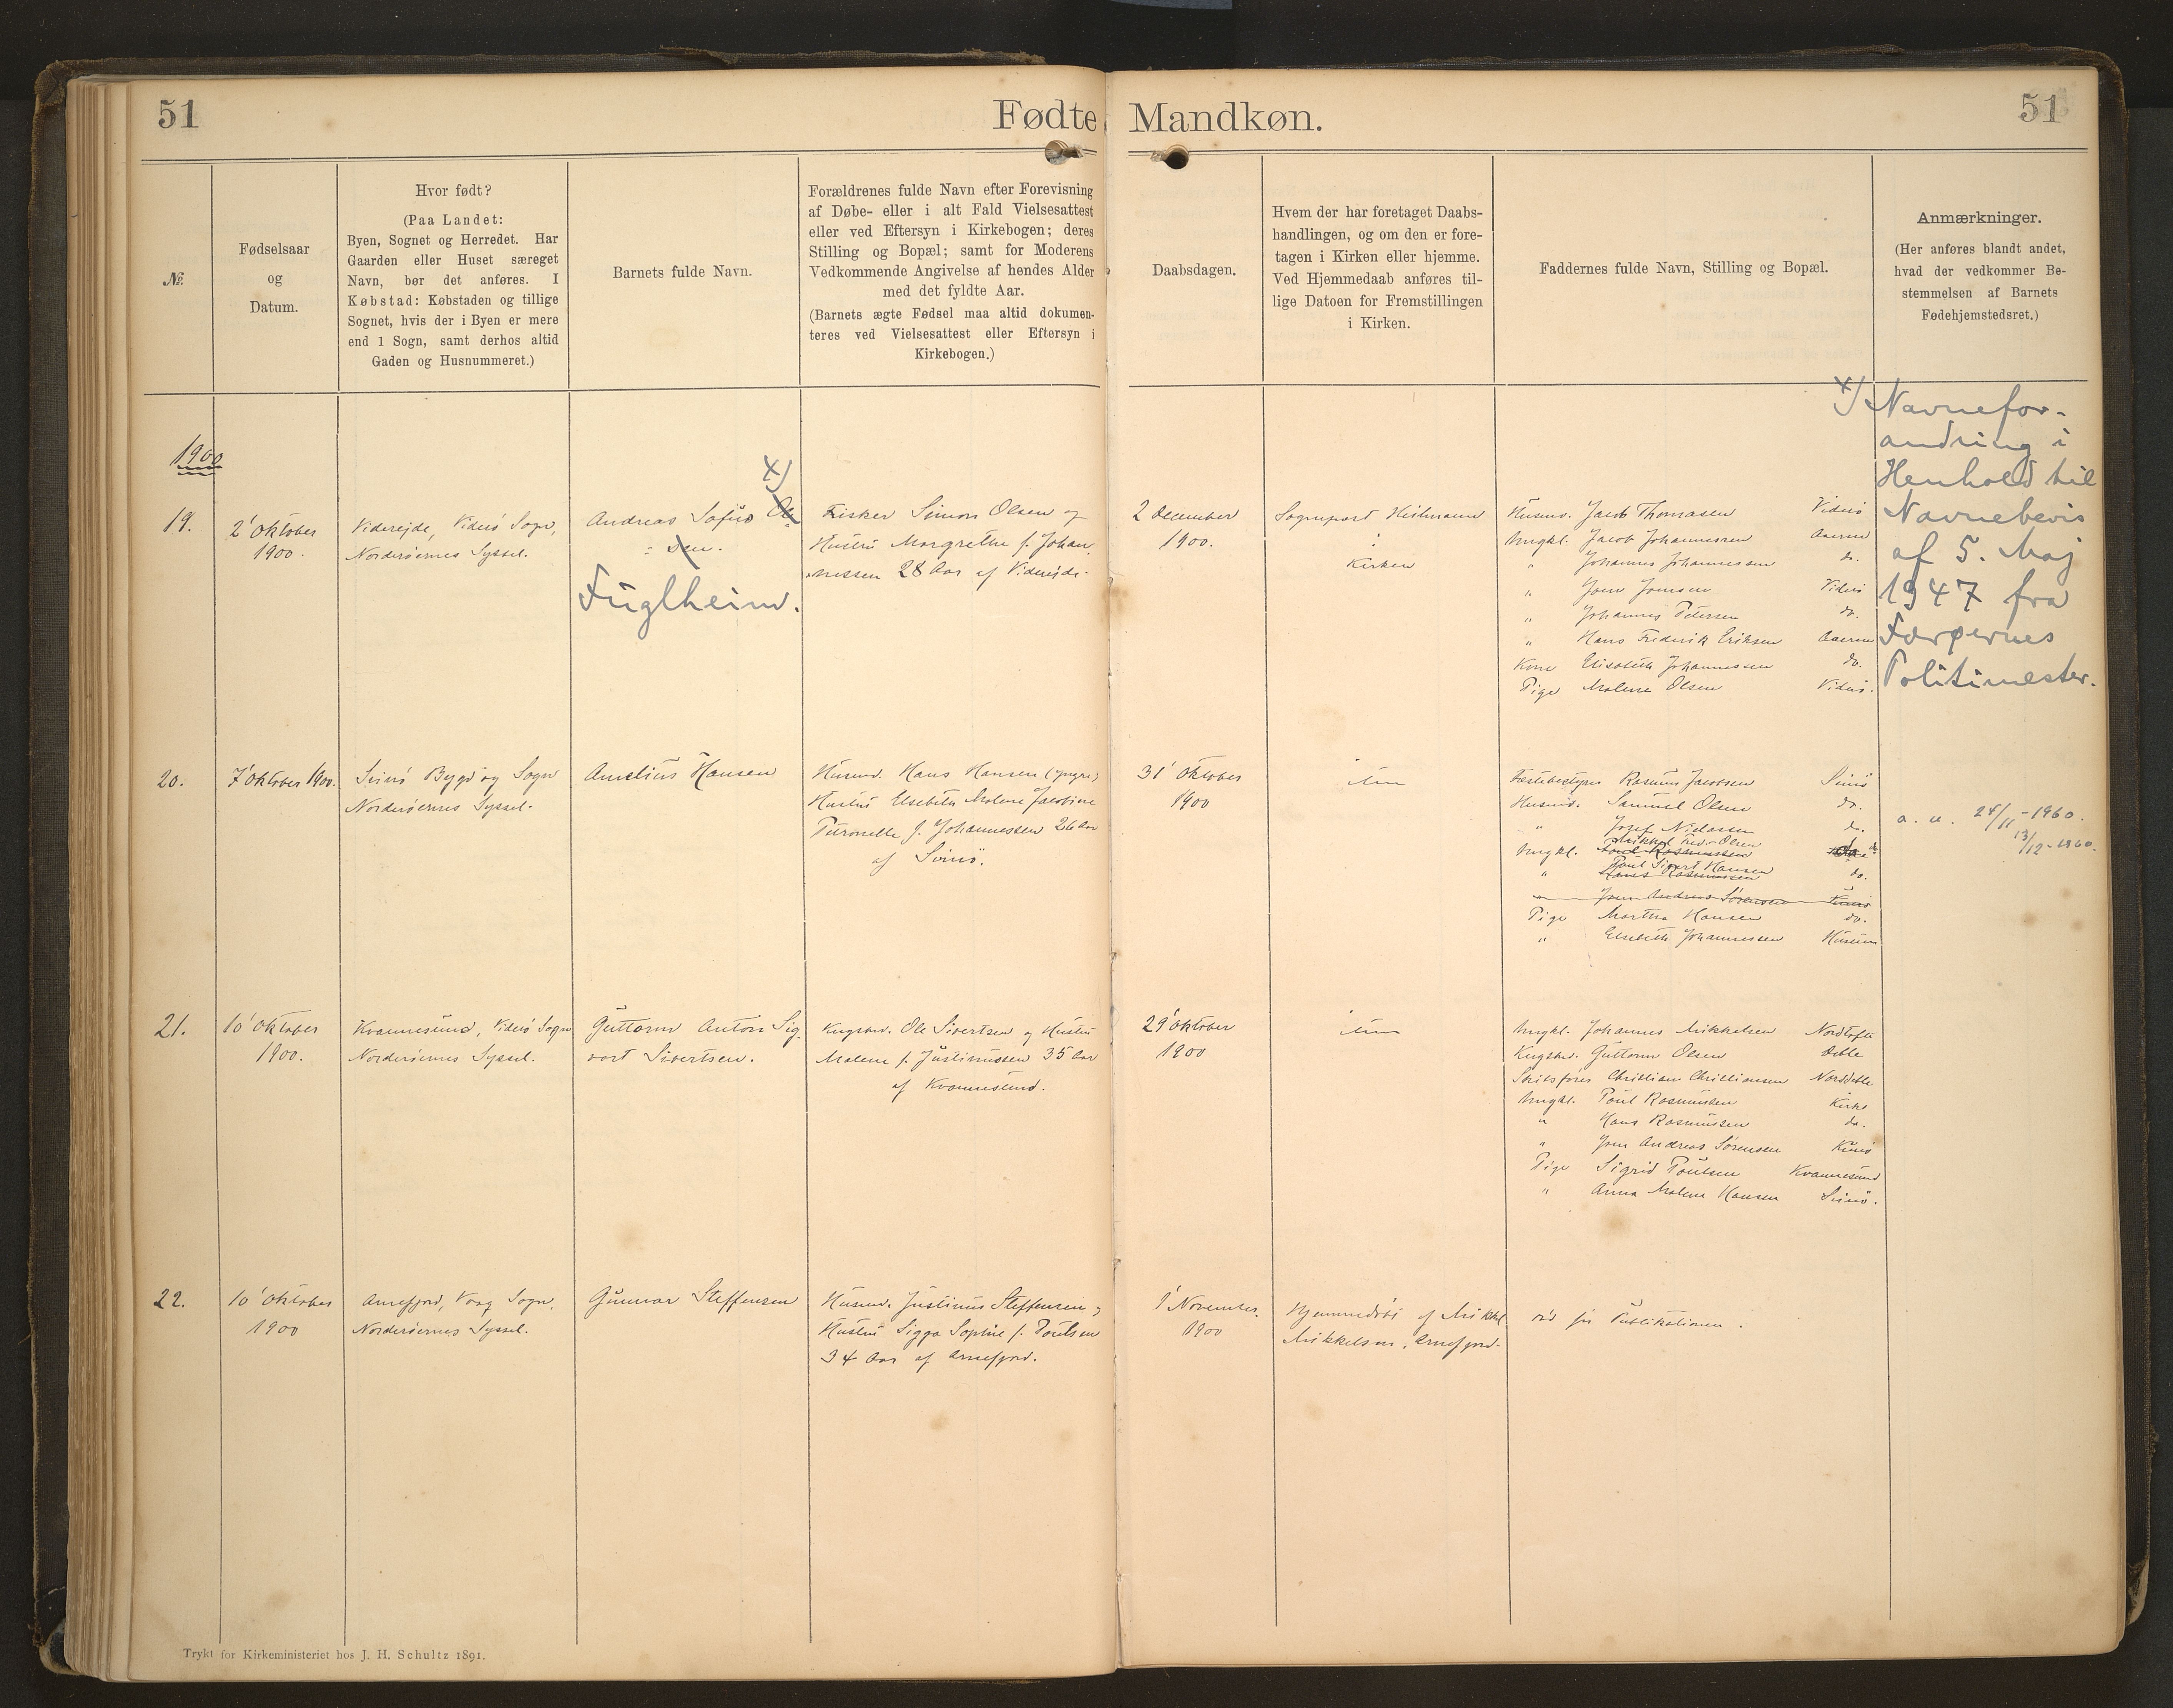 51
Fødte
Mandkøn.
51
№.
Fødselsaar
og
Datum.
Hvor født?
(Paa Landet:
Byen, Sognet og Herredet. Har
Gaarden eller Huset særeget
Navn, bør det anføres. I
Købstad: Købstaden og tillige
Sognet, hvis der i Byen er mere
end 1 Sogn, samt derhos altid
Gaden og Husnummeret.)
Barnets fulde Navn.
Forældrenes fulde Navn efter Forevisning
af Døbe- eller i alt Fald Vielsesattest
eller ved Eftersyn i Kirkebogen; deres
Stilling og Bopæl; samt for Moderens
Vedkommende Angivelse af hendes Alder
med det fyldte Aar.
(Barnets ægte Fødsel maa altid dokumen-
teres ved Vielsesattest eller Eftersyn i
Kirkebogen.)
Daabsdagen.
Hvem der har foretaget Daabs-
handlingen, og om den er fore-
tagen i Kirken eller hjemme.
Ved Hjemmedaab anføres til-
lige Datoen for Fremstillingen
i Kirken.
Faddernes fulde Navn, Stilling og Bopæl.
Anmærkninger.
(Her anføres blandt andet,
hvad der vedkommer Be-
stemmelsen af Barnets
Fødehjemstedsret.)
1900
19.
2' Oktober
1900.
Viderejde, Viderö Sogn,
Norderöernes Syssel.
x)
Andreas Sofus Ol-
sen.
Fuglheim.
Fisker Simon Olsen og
Hustru Margrethe f. Johan-
nessen 28 Aar af Viderejde.
2 December
1900.
Sognepræst Heilmann
i
Kirken
Husmd. Jacob Thomasen Viderö
Ungkl. Jacob Johannesen
" Johannes Johannessen do.
" Joen Joensen Viderö
" Johannes Petersen do.
" Hans Frederik Eriksen
Kone Elisabeth Johannessen do.
Pige Malene Olsen Viderö.
x) Navnefor-
andring i
Henhold til
Navnebevis
af 5. Maj
1947 fra
Færøernes
Politimester.
20.
7' Oktober 1900.
Svinö Bygd og Sogn
Norderöernes Syssel.
Amelius Hansen
Husmd. Hans Hansen (yngre)
Hustru Elsebeth Malene Jacobine
Petronelle f. Johannessen 26 Aar
af Svinö.
31' Oktober
1900
item
Fæstebestyrer Rasmus Jacobsen Svinö
Husmd. Samuel Olsen do.
" Josef Niclassen do.
Mikkel Fred. Olsen do
Ungkl. Poul Rasmussen
Poul Sivert Hansen
" Hans Rasmussen do.
" Joen Andreas Sörensen Kunö
Pige Martha Hansen do.
" Elsebeth Johannessen Husum
a. u. 24/11-1960.
13/12-1960.
21.
10' Oktober
1900.
Kvannesund, Viderö Sogn
Norderöernes Syssel.
Guttorm Anton Sig-
vort Sivertsen.
Kngsbd. Ole Sivertsen og Hustru
Malene f. Justinussen 35 Aar
af Kvannesund.
29' Oktober
1900
item
Ungkl. Johannes Mikkelsen Nordtofte
Kngsbd. Guttorm Olsen Deble
Skibsförer Christian Christiansen Norddeble
Ungkl. Poul Rasmussen Kirke
" Hans Rasmussen do.
" Joen Andreas Sörensen Kunö
Pige Sigrid Poulsen Kvannesund
" Anna Malene Hansen Svinö.
22.
10' Oktober
1900
Arnefjord, Vaag Sogn,
Norderöernes Syssel.
Gunnar Steffensen
Husmd. Justinus Steffensen og
Hustru Sigga Sophie f. Poulsen
34 Aar af Arnefjord.
1' November.
1900
Hjemmedöbt af Mikkel
Mikkelsen, Arnefjord.
död før Publikationen.
Trykt for Kirkeministeriet hos J. H. Schultz 1891.